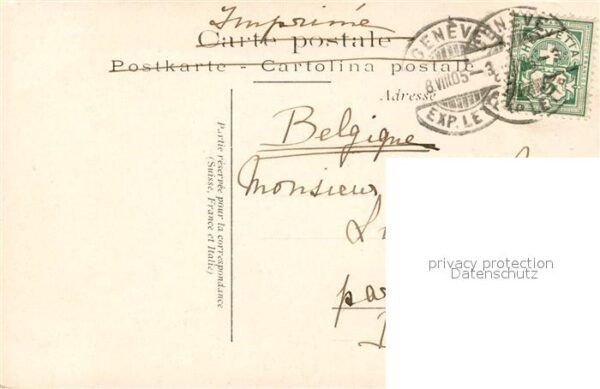 Imprimé
Carte postale
Postkarte - Cartolina postale
GENÈVE
8.VIII.05
EXP. LE
Adresse
Belgique
Monsieur
Partie réservée pour la correspondance
(Suisse, France et Italie)
privacy protection
Datenschutz